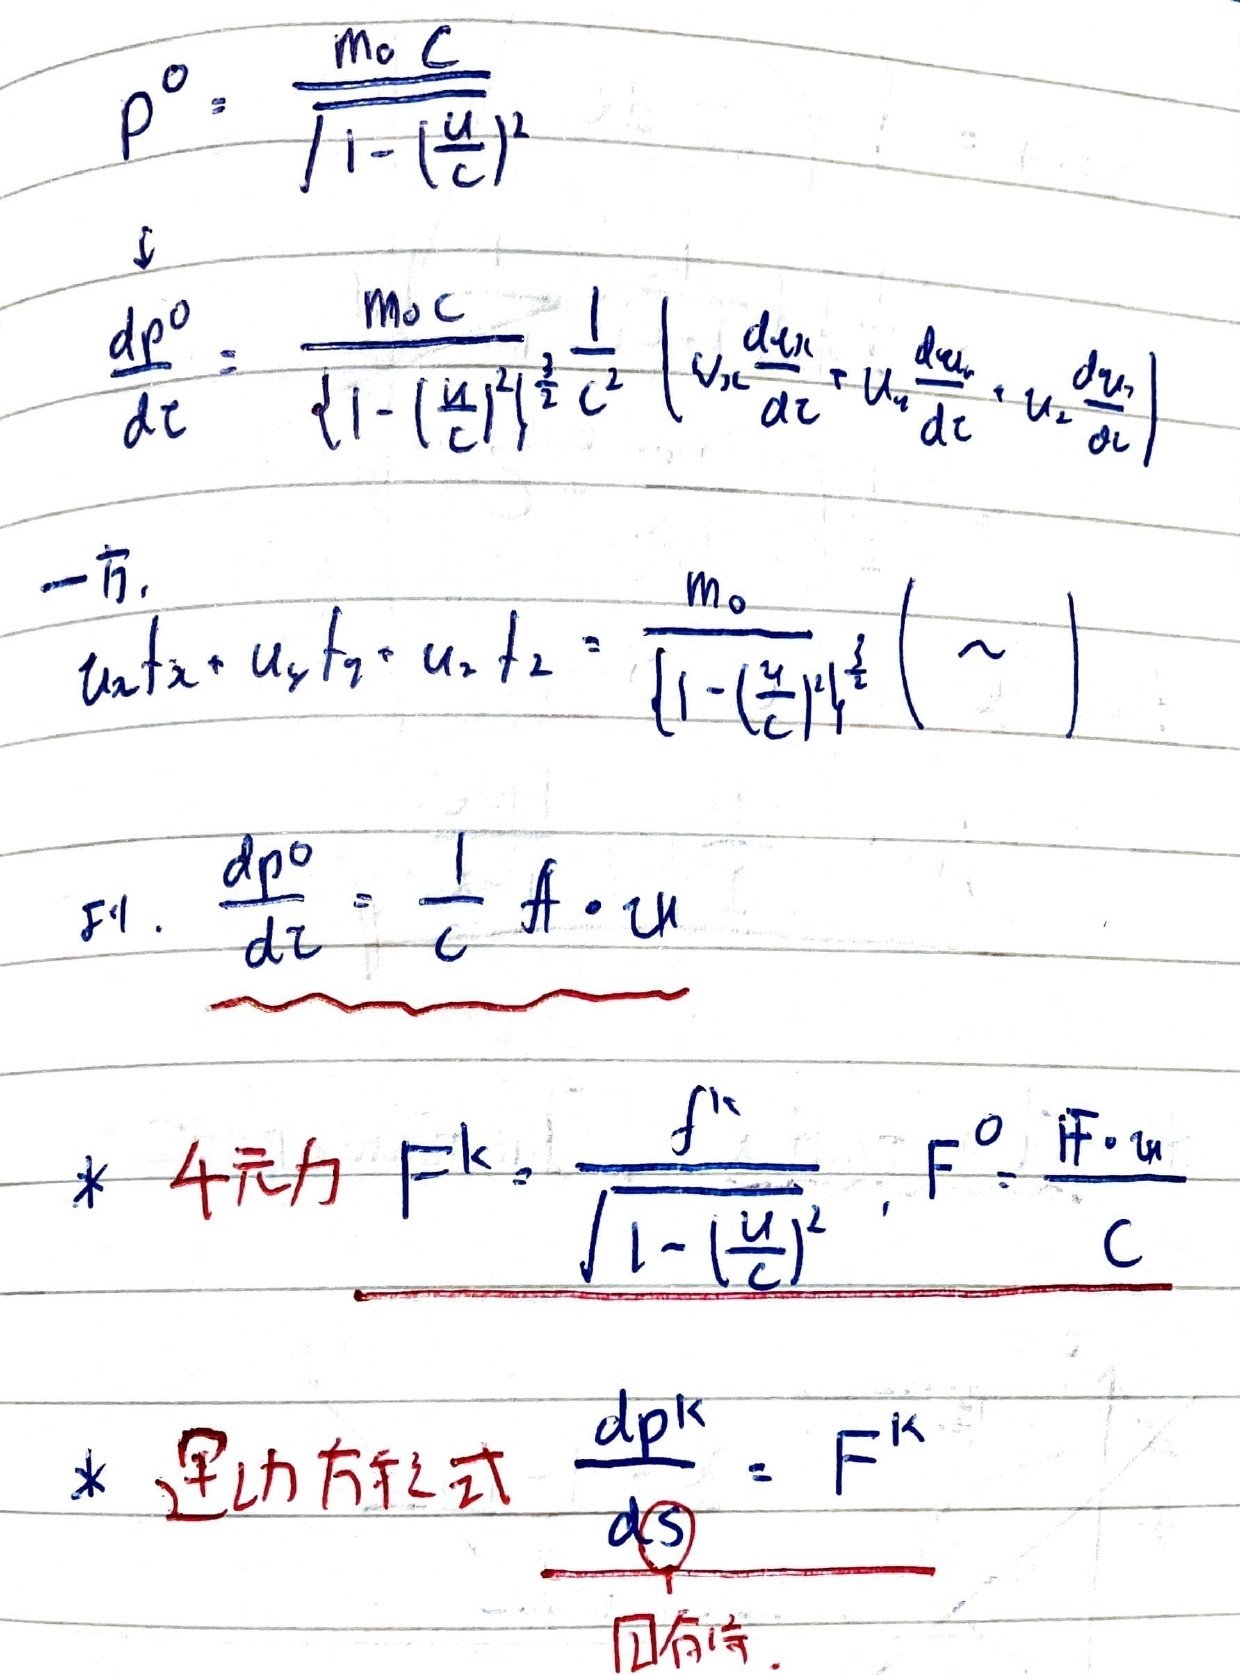 p⁰ = m₀c / √(1 - (u/c)²)
↓
dp⁰/dτ = m₀c / {1 - (u/c)²}^(3/2) 1/c² (uₓ duₓ/dτ + u_y du_y/dτ + u_z du_z/dτ)
一方,
uₓfₓ + u_y f_y + u_z f_z = m₀ / {1 - (u/c)²}^(3/2) ( ~ )
より. dp⁰/dτ = 1/c f・u
* 4元力 Fᵏ = fᵏ / √(1 - (u/c)²) , F⁰ = F・u / c
* 運動方程式 dpᵏ/ds = Fᵏ
固有時.